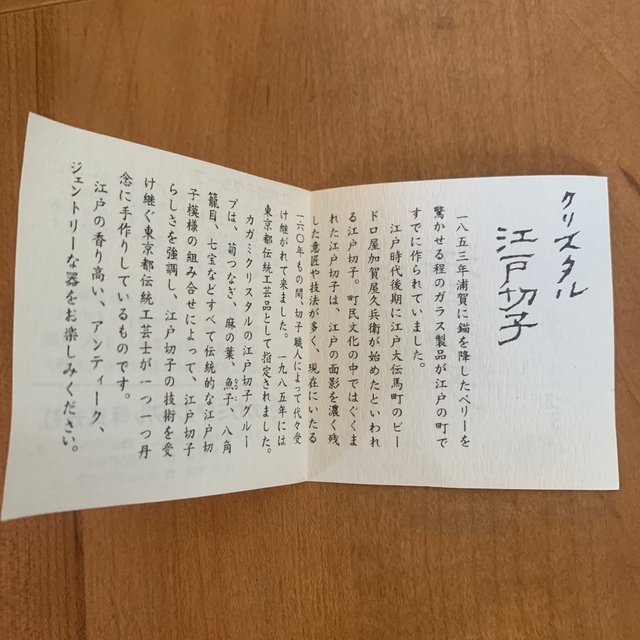 クリスタル
江戸切子
一八五三年浦賀に錨を降したペリーを
驚かせる程のガラス製品が江戸の町で
すでに作られていました。
江戸時代後期に江戸大伝馬町のビー
ドロ屋加賀屋久兵衛が始めたといわれ
る江戸切子。町民文化の中ではぐくま
れた江戸切子は、江戸の面影を濃く残
した意匠や技法が多く、現在にいたる
一六〇年もの間、切子職人によって代々受
け継がれて来ました。一九八五年には
東京都伝統工芸品として指定されました。
カガミクリスタルの江戸切子グルー
プは、菊つなぎ、麻の葉、魚子、八角
籠目、七宝などすべて伝統的な江戸切
子模様の組み合せによって、江戸切子
らしさを強調し、江戸切子の技術を受
け継ぐ東京都伝統工芸士が一つ一つ丹
念に手作りしているものです。
江戸の香り高い、アンティーク、
ジェントリーな器をお楽しみください。